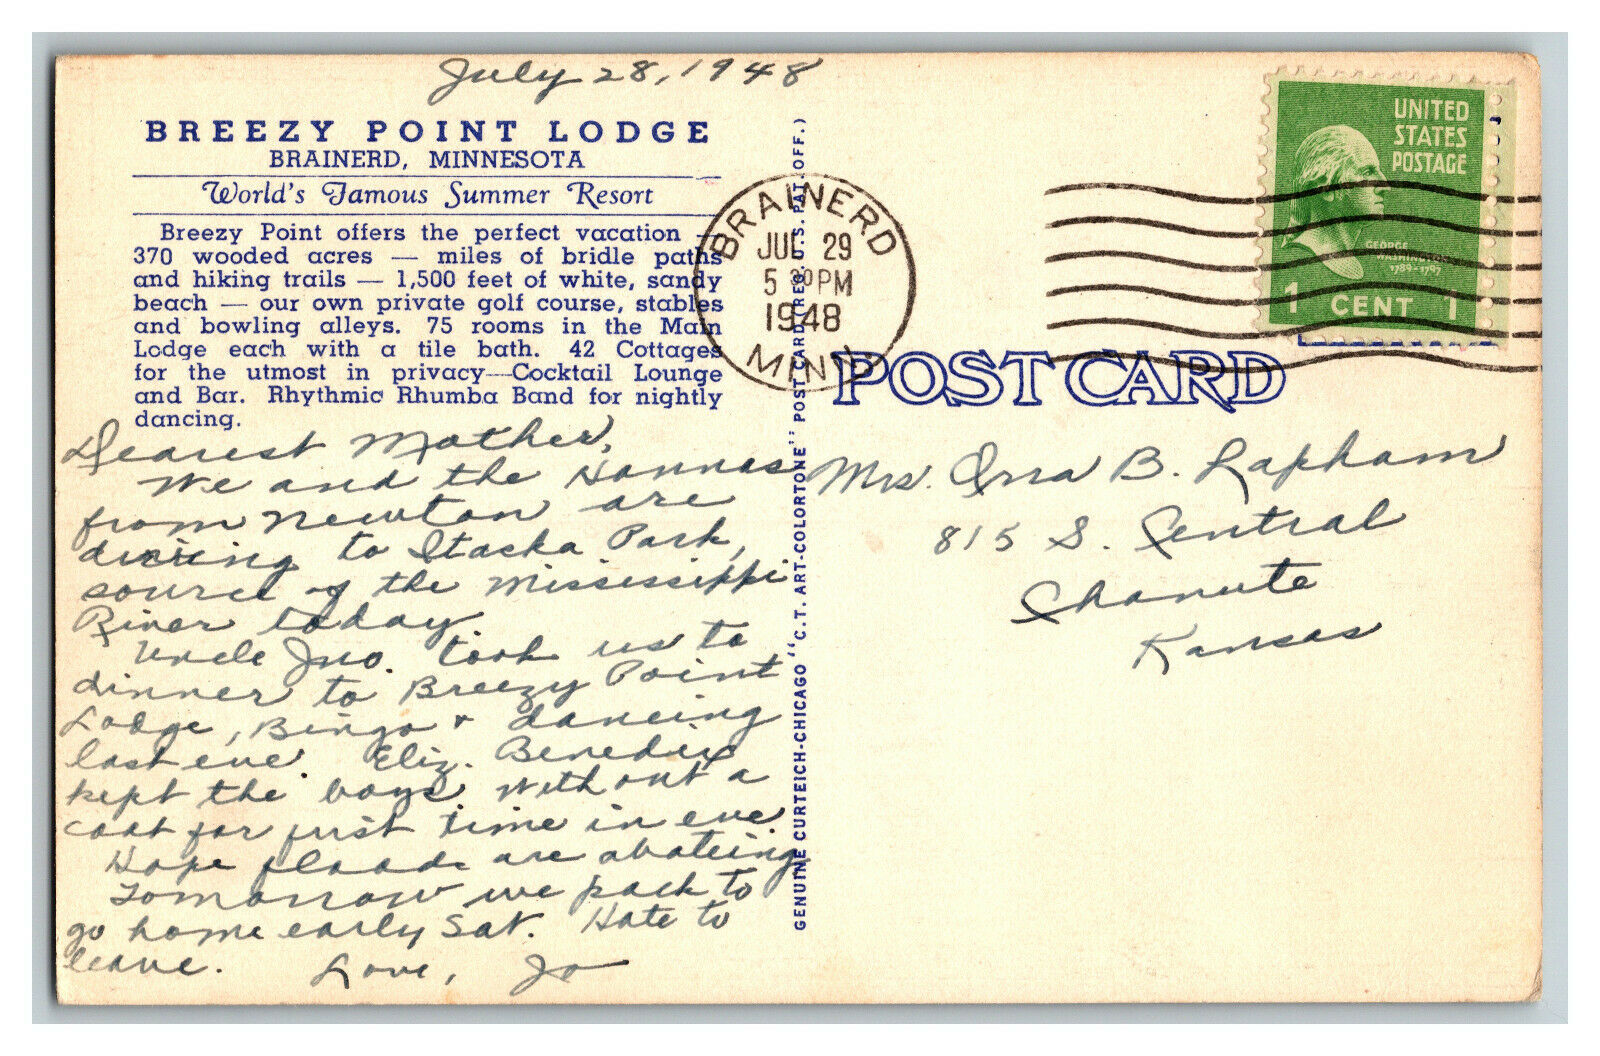 July 28, 1948
BREEZY POINT LODGE
BRAINERD, MINNESOTA
World's Famous Summer Resort
Breezy Point offers the perfect vacation —
370 wooded acres — miles of bridle paths
and hiking trails — 1,500 feet of white, sandy
beach — our own private golf course, stables
and bowling alleys. 75 rooms in the Main
Lodge each with a tile bath. 42 Cottages
for the utmost in privacy—Cocktail Lounge
and Bar. Rhythmic Rhumba Band for nightly
dancing.
Dearest Mother,
We and the Hannas
from Newton are
driving to Itaska Park,
source of the Mississippi
River today.
Uncle Jno. took us to
dinner to Breezy Point
Lodge, Bingo + dancing
last eve. Eliz. Benedix
kept the boys without a
coat for first time in eve.
Hope floods are abateing
Tomorrow we pack to
go home early Sat. Hate to
leave. Love, Jo
GENUINE CURTEICH-CHICAGO "C.T. ART-COLORTONE" POST CARD (REG. U.S. PAT. OFF.)
BRAINERD
JUL 29
5 30 PM
1948
MINN
UNITED
STATES
POSTAGE
GEORGE
WASHINGTON
1789-1797
1 CENT 1
POST CARD
Mrs. Orra B. Lapham
815 S. Central
Chanute
Kansas